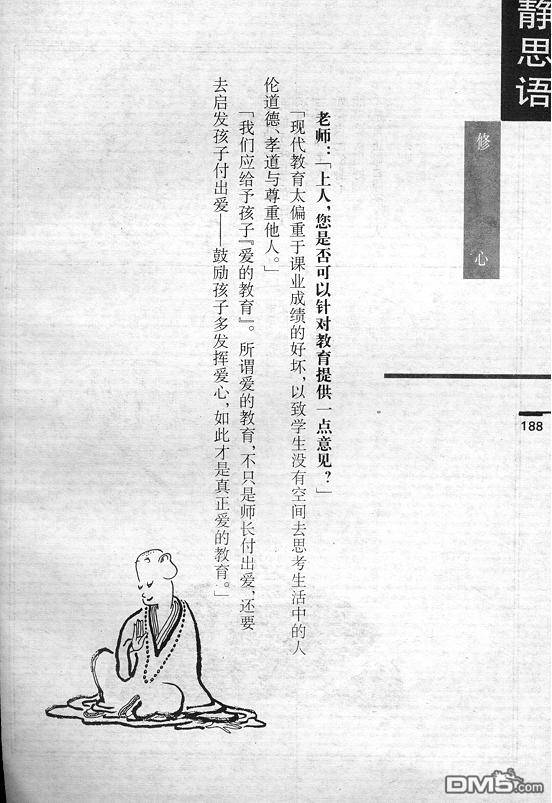 静思语
修心
188
老师：「上人，您是否可以针对教育提供一点意见？」
「现代教育太偏重于课业成绩的好坏，以致学生没有空间去思考生活中的人
伦道德、孝道与尊重他人。」
「我们应给予孩子『爱的教育』。所谓爱的教育，不只是师长付出爱，还要
去启发孩子付出爱——鼓励孩子多发挥爱心，如此才是真正爱的教育。」
DM5.com